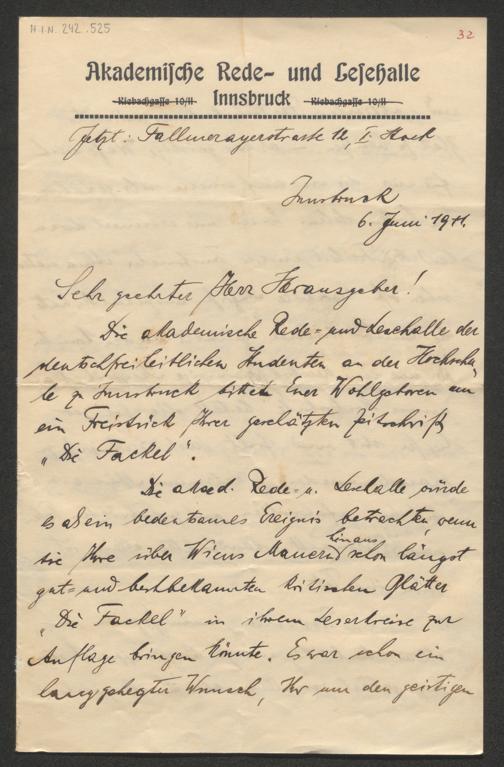 H.I.N. 242.525
32
Akademische Rede- und Lesehalle
Kiebachgasse 10/II Innsbruck Kiebachgasse 10/II
Jetzt: Fallmerayerstraße 12, I. Stock
Innsbruck
6. Juni 1911.
Sehr geehrter Herr Herausgeber!
Die akademische Rede- und Lesehalle der
deutschfreiheitlichen Studenten an der Hochschu-
le zu Innsbruck bittet Euer Wohlgeboren um
ein Freistück Ihrer geschätzten Zeitschrift
„Die Fackel".
Die akad. Rede- u. Lesehalle würde
es als ein bedeutsames Ereignis betrachten, wenn
sie Ihre über Wiens Mauern hinaus schon längst
gut- und bestbekannten kritischen Blätter
„Die Fackel" in ihrem Leserkreise zur
Auflage bringen könnte. Es war schon ein
langgehegter Wunsch, Ihr um den geistigen